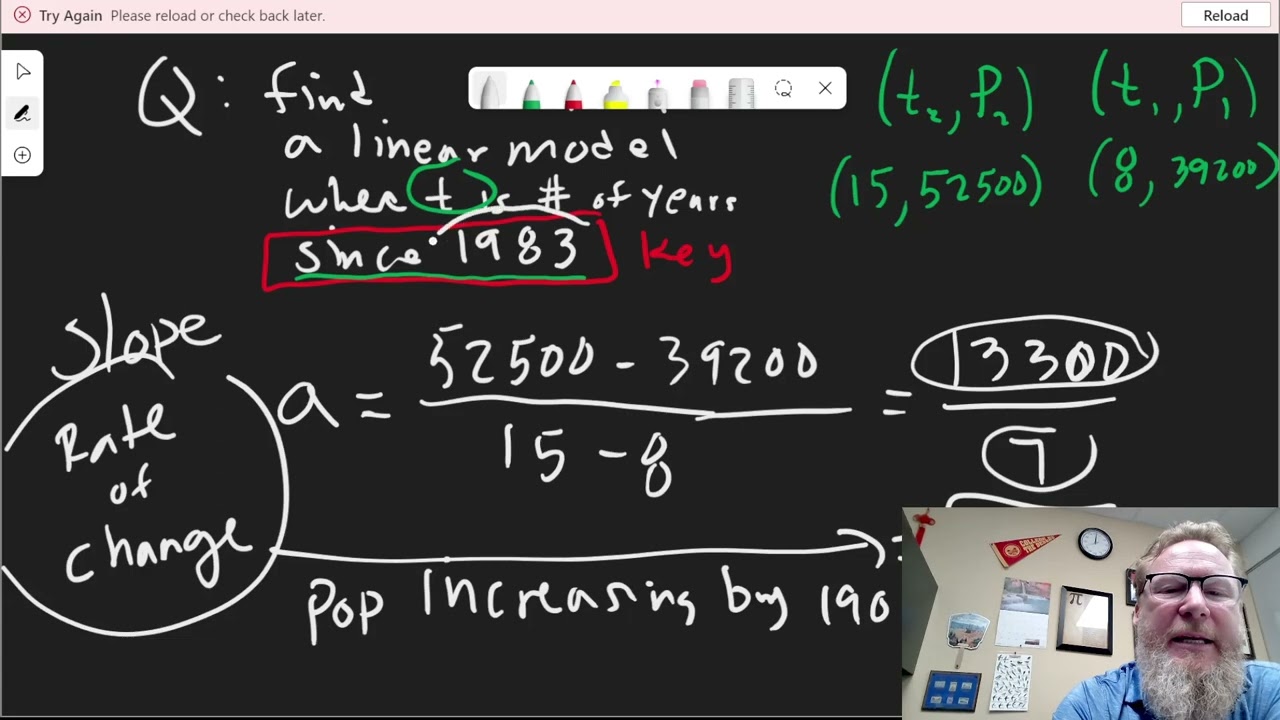 Try Again Please reload or check back later.
Reload
Q: find
a linear model
when t is # of years
since 1983 key
(t₂, P₂) (t₁, P₁)
(15, 52500) (8, 39200)
Slope
Rate
of
change
a = 52500 - 39200 = 13300
15 - 8 7
Pop Increasing by 190
π